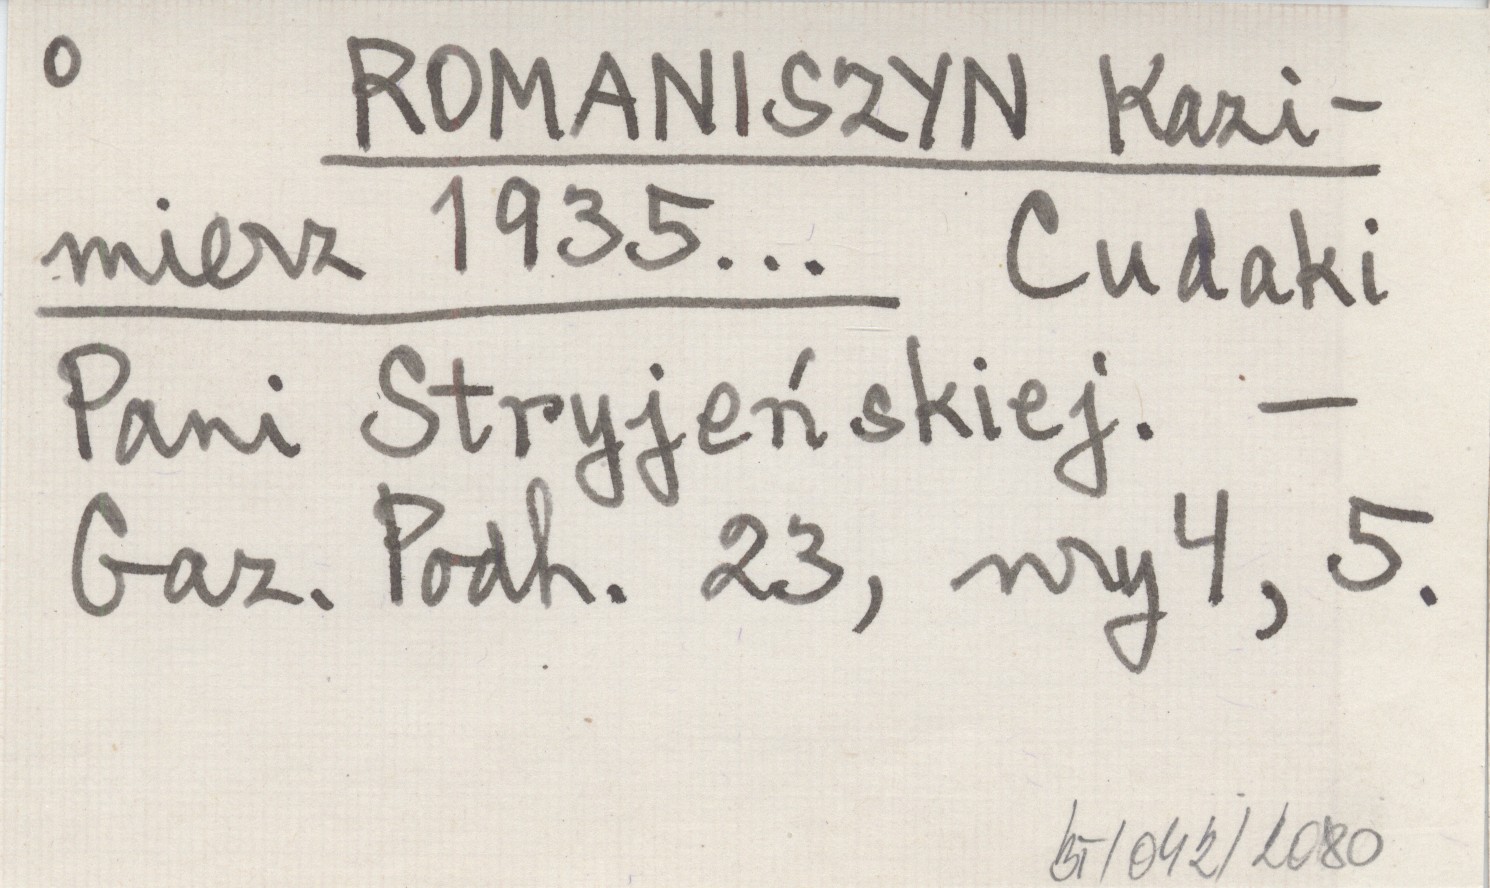 o ROMANISZYN Kazi-
mierz 1935... Cudaki
Pani Stryjeńskiej. —
Gaz. Podh. 23, nry 4, 5.
/042/2080